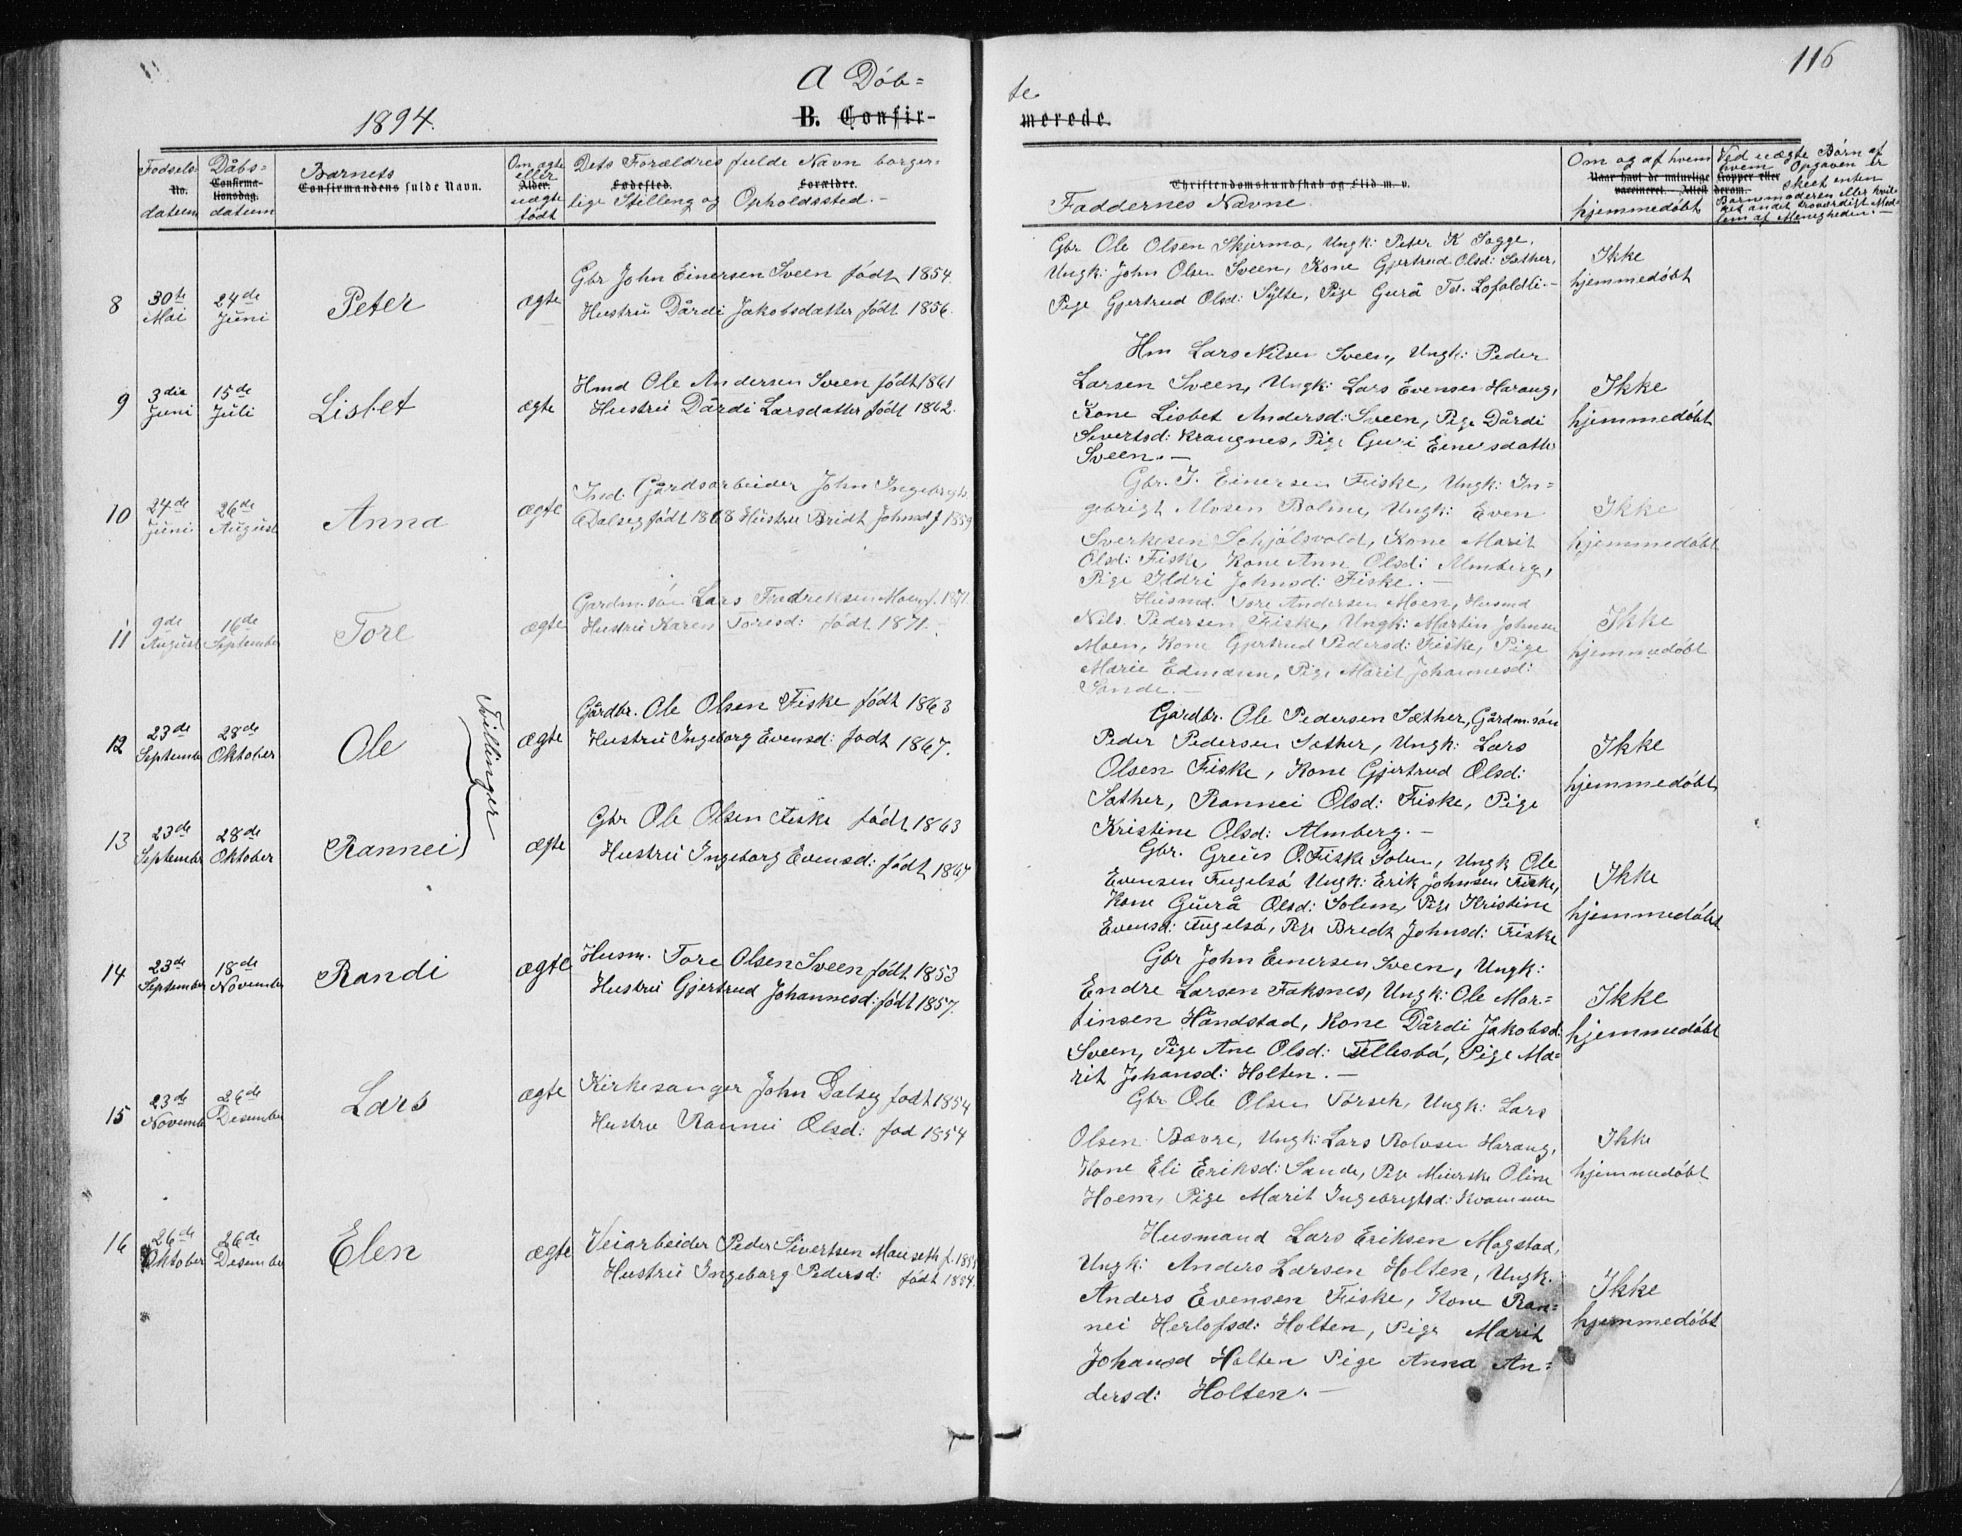 116
A Döb=
te
1894.
B. Confir-
merede.
Fødsels
No.
datum
Dåbs=
Confirma-
tionsdag.
datum
Barnets
Confirmandens fulde Navn.
Om ægte
eller
Alder.
uægte
født
Dets Forældres fulde Navn borger=
Fødested. Forældre.
lige Stilling og Opholdssted.-
Christendomskundskab og Flid m. v.
Faddernes Navne
Om og af hvem
Naar havt de naturlige
vaccineret. Attest
hjemmedöbt
Ved uægte Börn af
hvem Opgaven er
Kopper eller skeet enten
derom.
Barnemoderen eller hvil-
ket andet troværdigt Med-
lem af Menigheden.-
8 30te Mai
24de Juni
Peter
ægte
Gbr John Einersen Sveen födt 1854.
Hustru Dårdi Jakobsdatter födt 1856.
Gbr Ole Olsen Skjermo, Ungk: Peter K Sogge,
Ungk: John Olsen Sveen, Kone Gjertrud Olsd: Sæther,
Pige Gjertrud Olsd: Sylte, Pige Gurå Lofoldli.-
Ikke
hjemmedöbt
9 3die Juni
15de Juli
Lisbet
ægte
Hmd Ole Andersen Sveen födt 1861
Hustru Dårdi Larsdatter födt 1862.
Hm Lars Nilsen Sveen, Ungk: Peder
Larsen Sveen, Ungk: Lars Evensen Harang,
Kone Lisbet Andersd: Sveen, Pige Dårdi
Sivertsd: Krangnes, Pige Guri Einersdatter
Sveen.-
Ikke
hjemmedöbt
10 24de Juni
26de August
Anna
ægte
Ind. Gårdsarbeider John Ingebrigts.
Dalseg födt 1868 Hustru Bridt Johnsd f 1859
Gbr. I. Einersen Fiske, Ungk: In=
gebrigt Bolme, Ungk: Even
Sverkesen Schjölsvold, Kone Marit
Olsd: Fiske, Kone Ann Olsd: Almberg,
Pige Ildri Johnsd: Fiske.-
Ikke
hjemmedöbt
11 9de August
16de September
Tore
ægte
Gardm.sön Lars Fredriksen Moen f. 1871.
Hustru Karen Toresd: födt 1871.-
Husmd. Tore Andersen Moen, Husmd
Nils Pedersen Fiske, Ungk: Martin Johnsen
Moen, Kone Gjertrud Pedersd: Fiske, Pige
Marie Edmdsen, Pige Marit Johannesd:
Sande.-
Ikke
hjemmedöbt
Tvillinger
12 23de September
28de Oktober
Ole
ægte
Gårdbr. Ole Olsen Fiske födt 1863
Hustru Ingeborg Evensd: födt 1867.
Gardbr. Ole Pedersen Sæther, Gårdm.sön
Peder Pedersen Sæther, Ungk: Lars
Olsen Fiske, Kone Gjertrud Olsd:
Sæther, Rannei Olsd: Fiske, Pige
Kristine Olsd: Almberg.-
Ikke
hjemmedöbt
13 23de September
28de Oktober
Rannei
ægte
Gbr Ole Olsen Fiske födt 1863
Hustru Ingeborg Evensd: födt 1867
Gbr. Greus O. Fiske Solem, Ungk Ole
Evensen Fugelsö Ungk: Erik Johnsen Fiske,
Kone Gurå Olsd: Solem, Pige Kristine
Evensd: Fugelsö, Pige Bredt Johnsd: Fiske
Ikke
hjemmedöbt
14 23de September
18de November
Randi
ægte
Husm. Tore Olsen Sveen födt 1853
Hustru Gjertrud Johannesd: födt 1857.
Gbr John Einersen Sveen, Ungk:
Endre Larsen Faksnes, Ungk: Ole Mar=
tinsen Håndstad, Kone Dårdi Jakobsd:
Sveen, Pige Ane Olsd: Tellesbö, Pige Ma=
rit Johansd: Holten.-
Ikke
hjemmedöbt
15 23de November
26de Desember
Lars
ægte
Kirkesanger John Dalseg födt 1854
Hustru Rannei Olsd: föd 1854
Gbr Ole Olsen Torseth, Ungk: Lars
Olsen Bævre, Ungk: Lars Rolvsen Harang,
Kone Eli Eriksd: Sande, Pige Meierske Oline
Hoem, Pige Marit Ingebrigtsd: Kvammen
Ikke
hjemmedöbt
16 26de Oktober
26de Desember
Elen
ægte
Veiarbeider Peder Sivertsen Mauseth f. 185
Hustru Ingeborg Pedersd: födt 1854.
Husmand Lars Eriksen Mogstad,
Ungk: Anders Larsen Holten, Ungk.
Anders Evensen Fiske, Kone Ran=
nei Herlofsd: Holten, Pige Marit
Johansd Holten Pige Anna An=
dersd: Holten.-
Ikke
hjemmedöbt